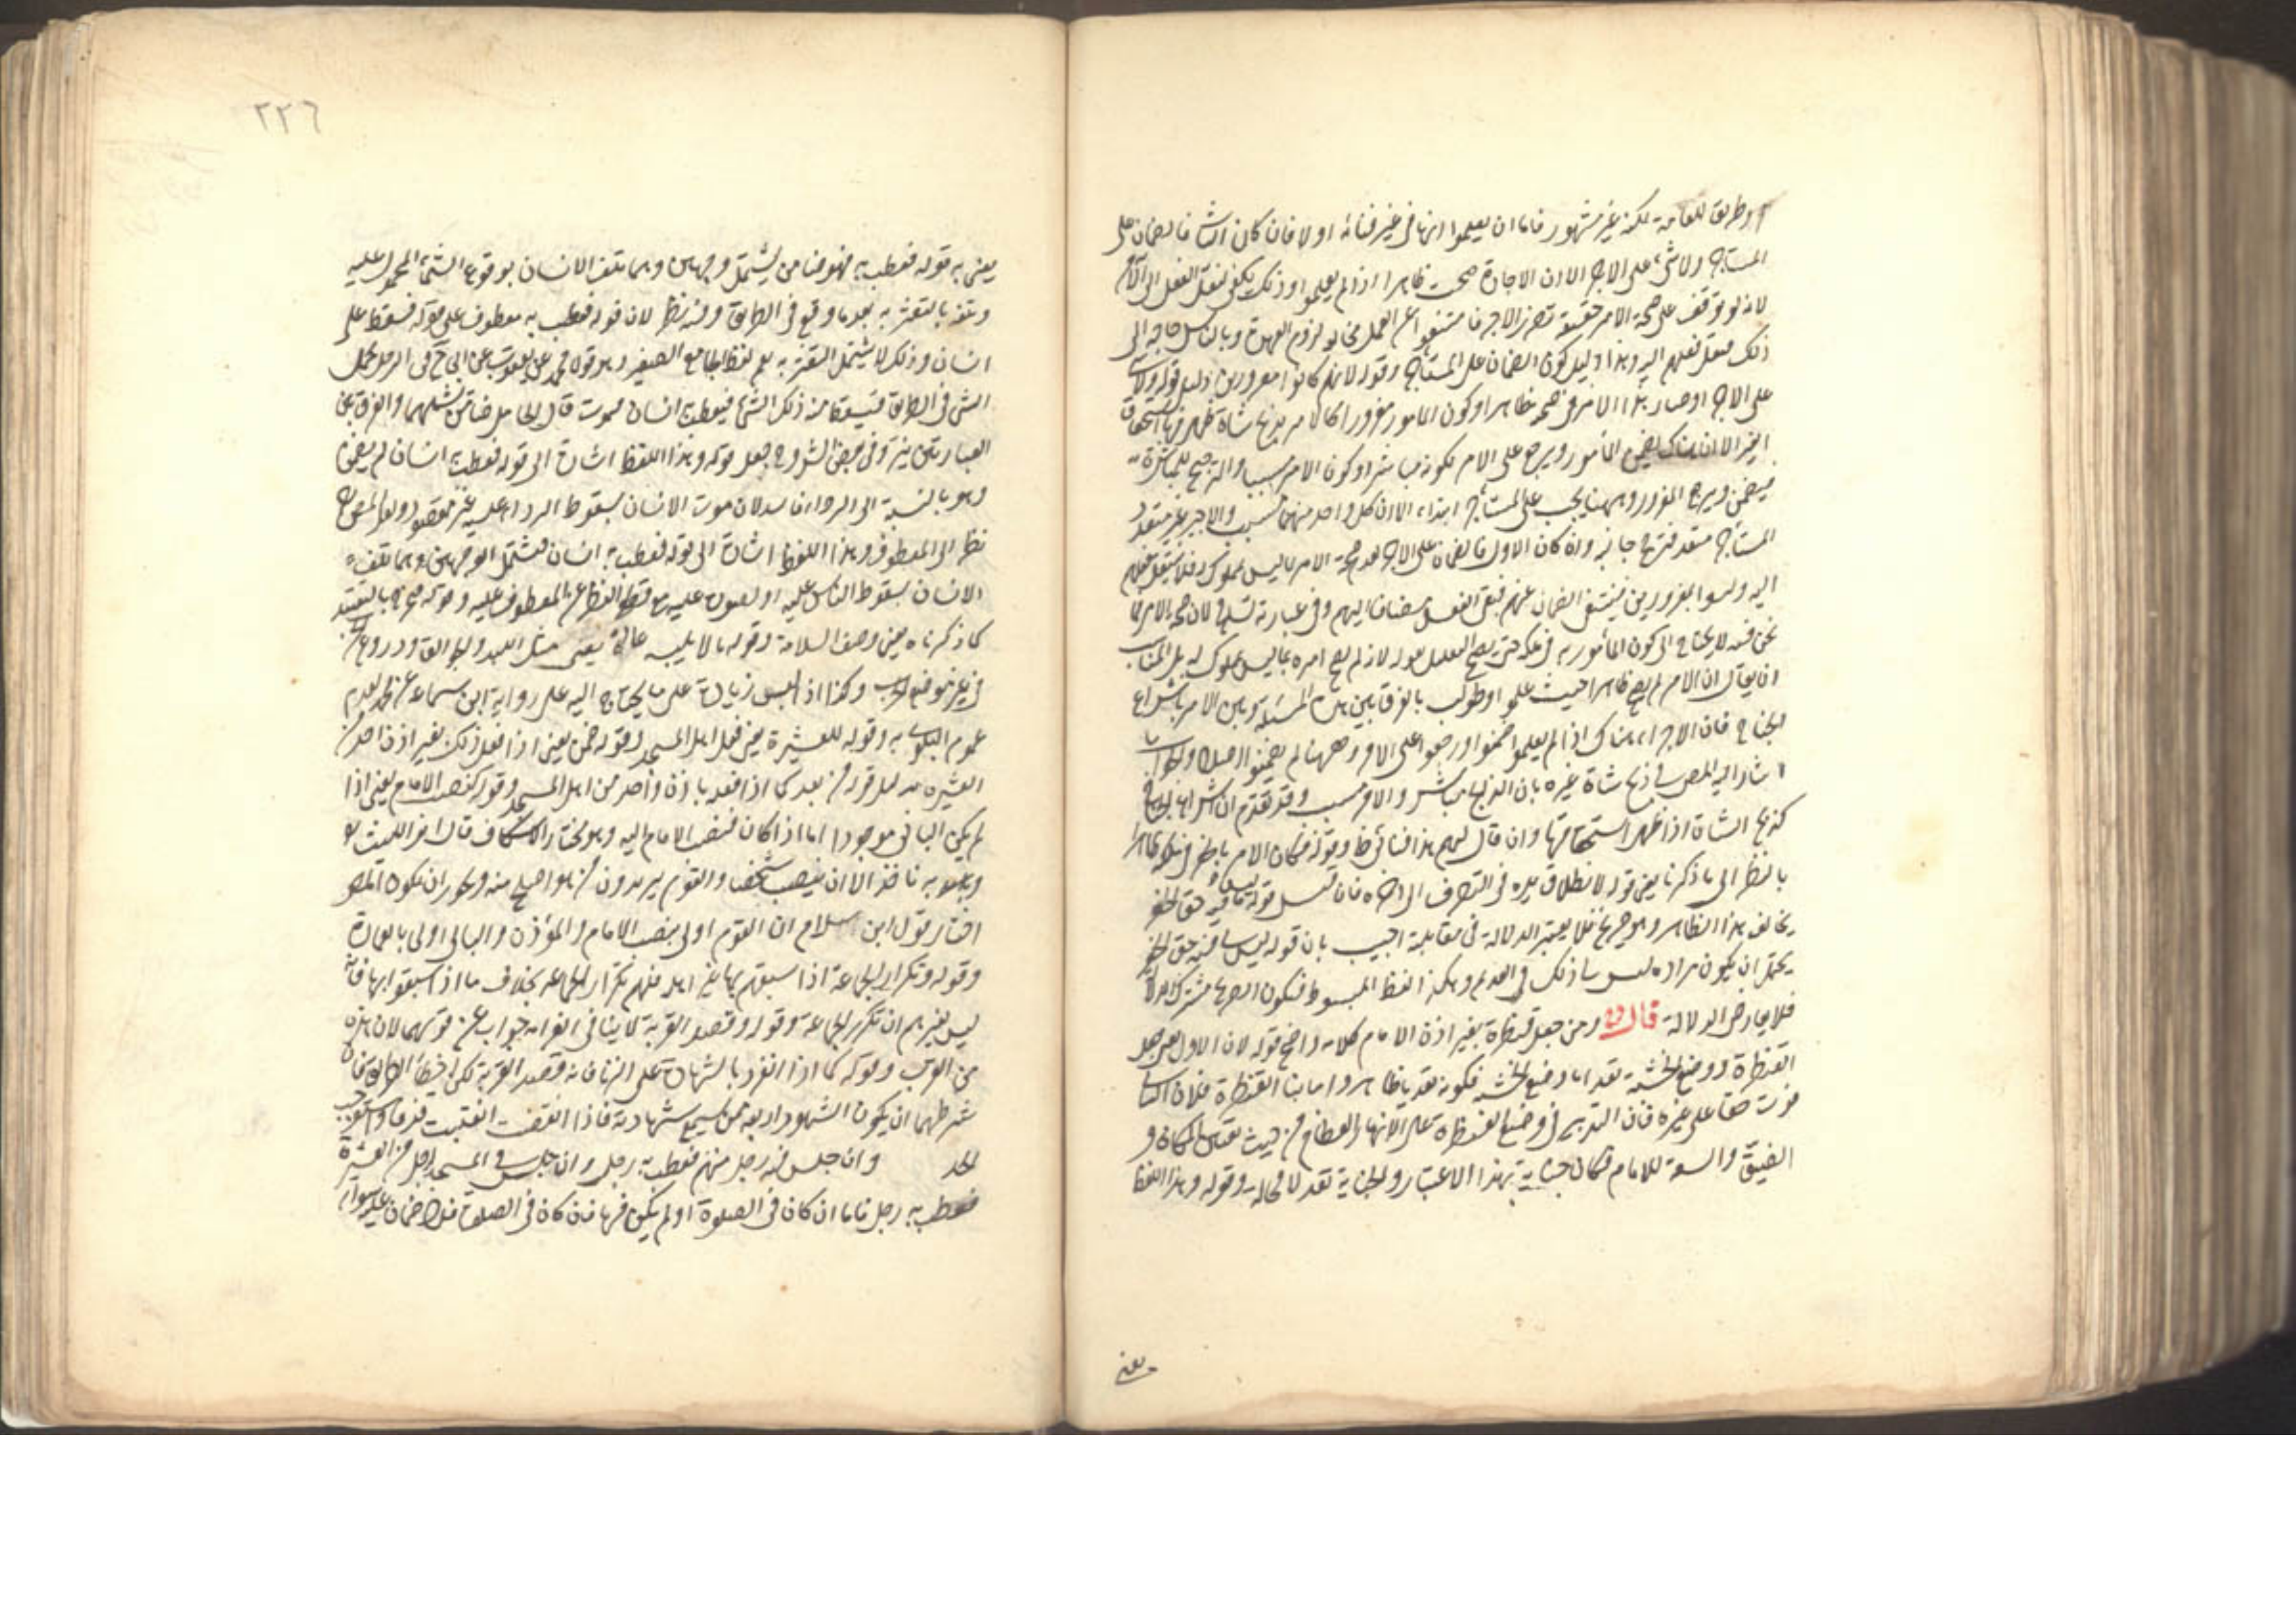 او طريق للعامة لكنه غير مشهور فاما ان يعلموا انها في غير فنائه او لا فان كان الثاني فالضمان على
المستأجر ولا شيء على الاجير الا ان الاجارة صحت ظاهرا اذا لم يعلموا وذلك يكفي لنقل الفعل الى الآمر
لانه لو توقف على صحة الامر حقيقة تضرر الاجراء العمل لزوم العهدة وبالناس حاجة الى
ذلك فينقل فعلهم اليه وهذا دليل كون الضمان على المستأجر وقوله لانهم كانوا مغرورين دليل قوله ولا شيء
على الاجير او صار هذا الامر في صحته ظاهرا وكون المأمور مغرورا كالامر بذبح شاة ظهر فيها استحقاق
الغير الا ان هناك يضمن المأمور ويرجع على الامر لكونه مباشرا وكون الامر مسببا والترجيح للمباشرة
فيضمن ويرجع للغرور وههنا يجب على المستأجر ابتداء الا ان كل واحد منهما مسبب والاجير غير متعد
المستأجر متعد فترجح جانبه وان كان الاول فالضمان على الاجير لعدم صحة الامر بما ليس بمملوك له فلا ينتقل فعلهم
اليه وليسوا بمغرورين فينتفي الضمان عنهم فبقي الفعل مضافا اليهم وفي عبارته تسامح لان صحة الامر فيما
نحن فيه لا يحتاج الى كون المأمور به في ملكه حتى يصح التعليل بقوله لانه لم يصح امره بما ليس بمملوك له بل المناسب
ان يقال ان الامر لم يصح ظاهرا حيث علموا وطولب بالفرق بين هذه المسئلة وبين الامر باشراع
الجناح فان الاجراء هناك اذا لم يعلموا ضمنوا ورجعوا على الامر وههنا لم يضمنوا اصلا والجواب ما
اشار اليه المص في ذبح شاة غيره بان الذابح مباشر والامر مسبب وقد تقدم ان اشراع الجناح
كذبح الشاة اذا ظهر استحقاقها وان قال لهم هذا فنائي وقوله فكان الامر بالحفر في ملكه ظاهرا
بالنظر الى ما ذكرنا يعني قوله لانطلاق يده في التصرف الى اخره فان قيل قوله ليس لي فيه حق الحفر
يخالف هذا الظاهر وهو صريح فلا يعتبر الدلالة في مقابلته اجيب بان قوله ليس لي فيه حق الحفر
يحتمل ان يكون مراده ليس لي ذلك في القديم وهكذا لفظ المبسوط فيكون الصريح مشترك الدلالة
فلا يعارض الدلالة قال ومن جعل قنطرة بغير اذن الامام كلامه واضح قوله لان الاول يعني جعل
القنطرة ووضع الخشبة تعد اما وضع الخشبة فكونه تعديا ظاهر واما بناء القنطرة فلان الباني
فوت حقا على غيره فان التدبير في وضع القنطرة على الانهار العظام من حيث تعيين المكان و
الضيق والسعة للامام فكان جناية بهذا الاعتبار والجناية تعد لا محالة وقوله وهذا اللفظ
يعني
٢٢٦
يعني به قوله فعطب به فهو ضامن يشتمل وجهين وهما تلف الانسان بوقوع الشيء المحمول عليه
وتلفه بالتعثر به بعد ما وقع في الطريق وفيه نظر لان قوله فعطب به معطوف على قوله فسقط على
انسان وذلك لا يشتمل التعثر به نعم لفظ الجامع الصغير وهو قوله محمد عن يعقوب عن ابي ح في الرجل يحمل
الشيء في الطريق فيسقط منه ذلك الشيء فيعطب به انسان فيموت قال الحامل ضامن يشملهما والفرق بين
العبارتين بين وفي بعض الشروح جعل قوله وهذا اللفظ اشارة الى قوله فعطب به انسان لم يضمن
وهو بالنسبة الى الرداء لان موت الانسان بسقوط الرداء عليه غير مقصود ولعل المصرح
نظر الى المعطوف وهذا اللفظ اشارة الى قوله فعطب به انسان فيشتمل الوجهين وهما تلف
الانسان بسقوط اللباس عليه او بعثوره عليه مع قطع النظر عن المعطوف عليه وقوله بالتقييد
كما ذكرناه يعني وصف السلامة وقوله ما لا يلبسه عادة يعني مثل اللبد والجوالق ودروع
في غير موضع الحرب وكذا اذا لبس زيادة على ما يحتاج اليه على رواية ابن سماعة عن محمد لعدم
عموم البلوى به وقوله للعشيرة يعني قبل اهل المسجد وقوله ضمن يعني اذا فعل ذلك بغير اذن احد من
العشيرة بدليل قوله من بعد كما اذا فعله باذن واحد من اهل المسجد وقوله كنصب الامام يعني اذا
لم يكن الباني موجودا اما اذا كان فنصب الامام اليه وهو مختار الاسكاف قال ابو الليث
وبه ناخذ الا ان ينصب شخصا والقوم يريدون من هو اصلح منه ويجوز ان يكون المص
اختار قول ابن سلام ان القوم اولى بنصب الامام والمؤذن والباني اولى بالعمارة
وقوله وتكرار الجماعة اذا سبقهم بها غير اهله فلهم تكرار الجماعة بخلاف ما اذا سبقوا بها فانه
ليس لغيرهم ان تكرر الجماعة وقوله وقصد القربة لا ينافي الغرامة جواب عن قولهما لان هذه
من القرب وقوله كما اذا انفرد بالشهادة على الزنا فانه قصد القربة لكن اخطأ الطريق فان
شرطهما ان يكون الشهود اربعة فمن شهادته فاذا انفقت انقلبت قذفا واستوجب
الحد وان جلس فيه رجل منهم فعطب به رجل وان جلس في المسجد رجل من العشيرة
فعطب به رجل فاما ان كان في الصلوة او لم يكن فيها فان كان في الصلوة فلا ضمان عليه سواء